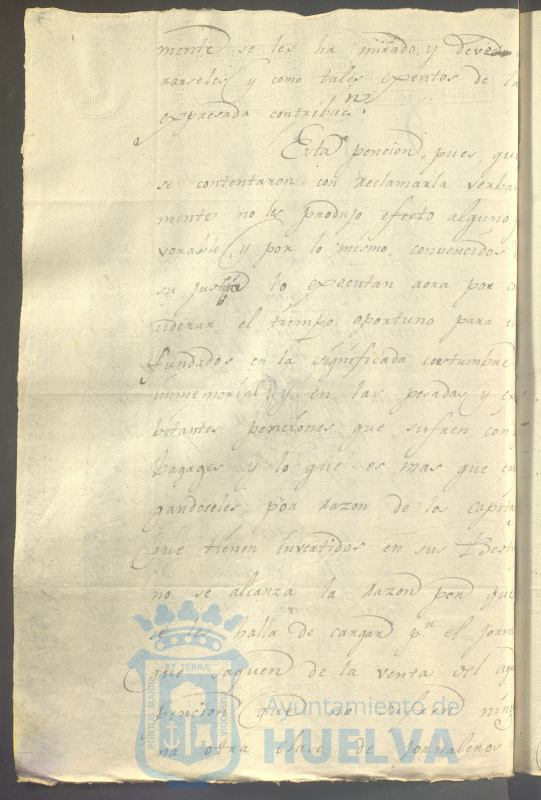 mente se les ha mirado, y deve
rarseles y como tales exentos de la
expresada contribuc.n
Esta pencion, pues, que
se contentaron con reclamarla verbal
mente no les produjo efecto alguno
vorable, y por lo mismo convencidos
su justa lo executan aora por co
ciderar el tiempo oportuno para
fundados en la significada costumbre
immemorial, y en las pesadas y ex
bitantes penciones que sufren con
bagages y lo que es mas que car
gandoseles por razon de los capita
que tienen invertidos en sus Besti
no se alcanza la razon por que
se les halla de cargar p.r el jorna
que saquen de la venta del agu
pencion que no sufren nin
na otra clase de Jornaleros
PORTUS MARIS
ET TERRE
CUSTODIA
Ayuntamiento de
HUELVA